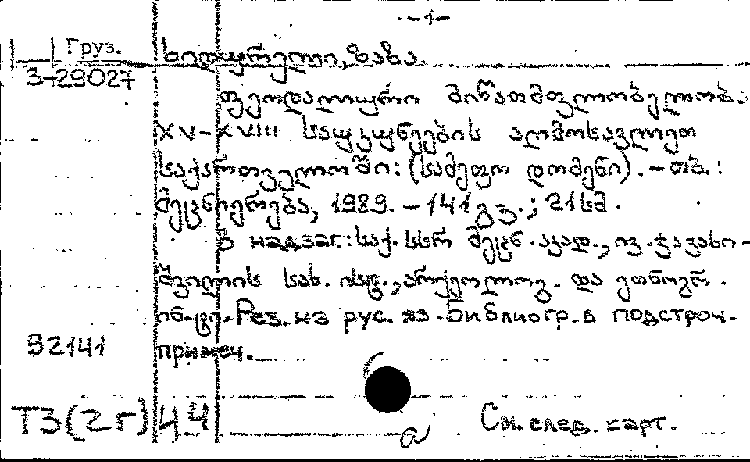 -1-
Груз.
სილურელი, ზაზა.
3-29027
ფეოდალიური მიწათმფლობელობა
XV-XVIII საუკუნეების აღმოსავლეთ
საქართველოში: (სამეფო დომენი). - თბ.:
მეცნიერება, 1989. - 141 გვ.; 21სმ.
В надзаг.: საქ. სსრ მეცნ. აკად., ივ. ჯავახი-
შვილის სახ. ისტ., არქეოლოგ. და ეთნოგრ.
ინ-ტი. Рез. на рус. яз. Библиогр. в подстроч.
92141
примеч.
Т3(2Г)44
См. след. карт.